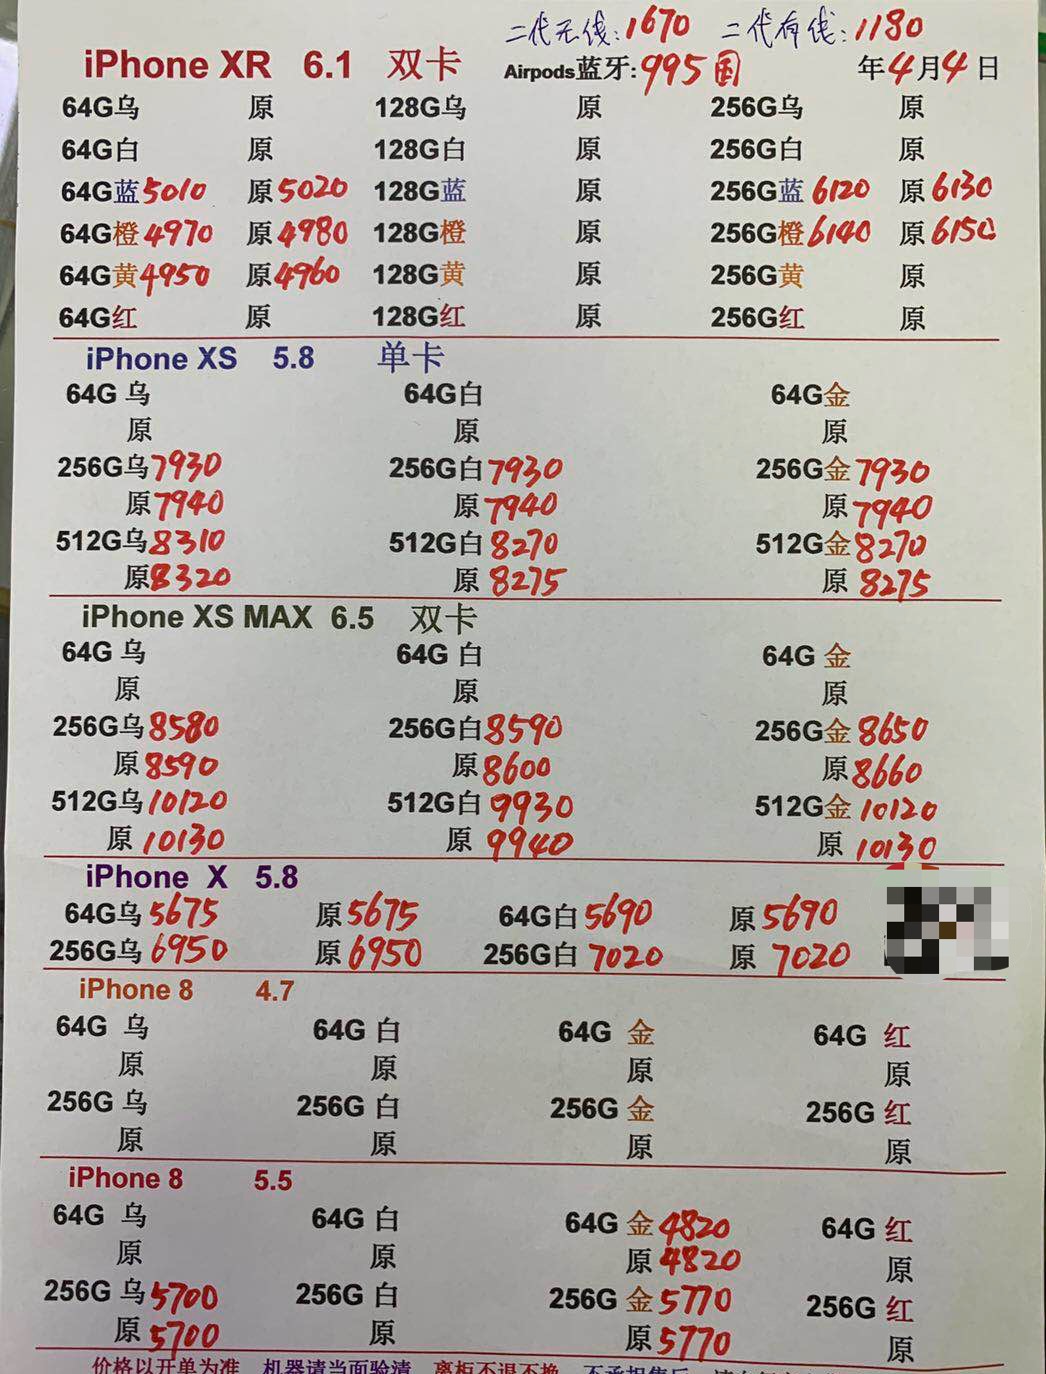 二代无线:1670 二代有线:1180
iPhone XR 6.1 双卡 Airpods蓝牙:995 国 年4月4日
64G乌 原 128G乌 原 256G乌 原
64G白 原 128G白 原 256G白 原
64G蓝5010 原5020 128G蓝 原 256G蓝 6120 原6130
64G橙4970 原4980 128G橙 原 256G橙6140 原6150
64G黄4950 原4960 128G黄 原 256G黄 原
64G红 原 128G红 原 256G红 原
iPhone XS 5.8 单卡
64G 乌 64G白 64G金
原 原 原
256G乌7930 256G白7930 256G金7930
原7940 原7940 原7940
512G乌8310 512G白8270 512G金8270
原8320 原8275 原8275
iPhone XS MAX 6.5 双卡
64G 乌 64G 白 64G 金
原 原 原
256G乌8580 256G白8590 256G金8650
原8590 原8600 原8660
512G乌10120 512G白9930 512G金10120
原10130 原9940 原10130
iPhone X 5.8
64G乌5675 原5675 64G白5690 原5690
256G乌6950 原6950 256G白7020 原7020
iPhone 8 4.7
64G 乌 64G 白 64G 金 64G 红
原 原 原 原
256G 乌 256G 白 256G 金 256G 红
原 原 原 原
iPhone 8 5.5
64G 乌 64G 白 64G 金4820 64G 红
原 原 原4820 原
256G 乌5700 256G 白 256G 金5770 256G 红
原5700 原 原5770 原
价格以开单为准 机器请当面验清 离柜不退不换